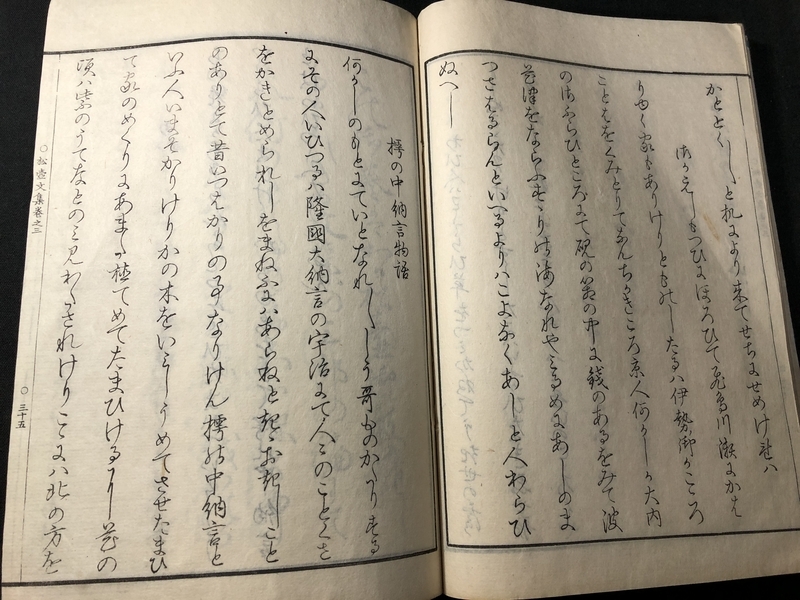 かととく〳〵と机により来てせちにせめけれハ
もつひにほろひて飛鳥川瀬にかは
りゆく家もありけりともせしたるハ伊勢御かこころ
ことはをくみとりてなんちかきころ京人何かしか大内
ひところにて硯の箱の中に銭のあるをみて波
花津をならふすゝりの海なれやみるめにあしのま
つさはるらんといへるよりハこよなくあしと人わらひ
ぬへし
樗の中納言物語
何かしのもとにていとなれ〳〵しう哥ものかたりする
にその人いひつるハ隆國大納言の宇治にて人〻のことくさ
をかきとめられしをまねふにハあらねと しこと
のありとて昔いつはかりの事なりけん樗の中納言と
いふ人いまそかりけりかの木をいミしうめてさせたまひ
て家のめくりにあまた植てめてたまひける 花の
頃ハ紫のうてなとのミ見わたされけりこゝにハ北の方を
○松壺文集巻之三
○三十五